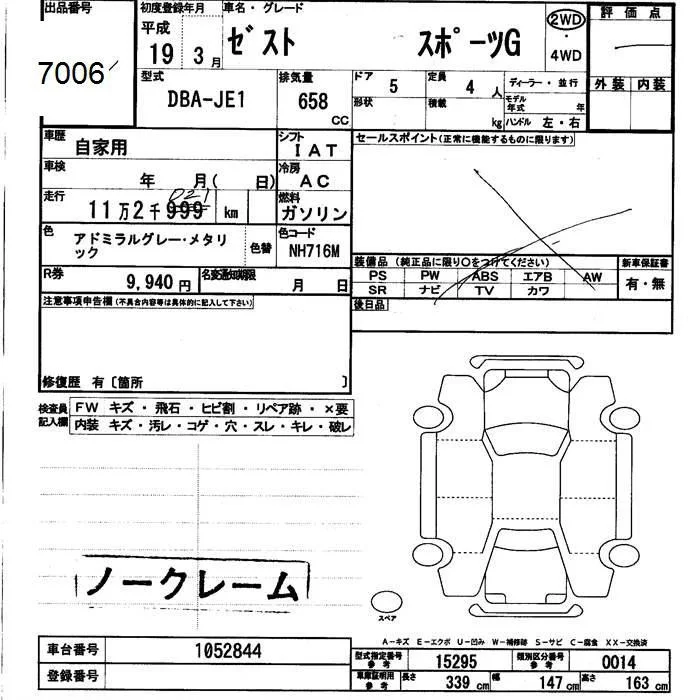 出品番号
初度登録年月
車名・グレード
評価点
7006
平成
19 3月
ゼスト スポーツG
2WD
・
4WD
外装 内装
型式
DBA-JE1
排気量
658
CC
ドア
5
定員
4 人
ディーラー・並行
形状
積載
kg
モデル年式
年
ハンドル 左・右
車歴
自家用
シフト
IAT
セールスポイント(正常に機能するものに限ります)
車検
年 月( 日)
冷房
AC
走行
11万2千999 km
021
燃料
ガソリン
色
アドミラルグレー・メタリック
色替
色コード
NH716M
装備品 (純正品に限り○をつけてください)
新車保証書
PS PW ABS エアB AW
SR ナビ TV カワ
有・無
R券
9,940円
名変通知期限
月 日
後日品
注意事項申告欄(不具合内容等は具体的に記入して下さい)
修復歴 有〔箇所 〕
検査員
記入欄
FW キズ・飛石・ヒビ割・リペア跡・×要
内装 キズ・汚レ・コゲ・穴・スレ・キレ・破レ
ノークレーム
スペア
A-キズ E-エクボ U-凹み W-補修跡 S-サビ C-腐食 XX-交換済
車台番号
1052844
登録番号
型式指定番号
参考
15295
類別区分番号
参考
0014
車庫証明用
参考
長さ
339 cm
幅
147 cm
高さ
163 cm